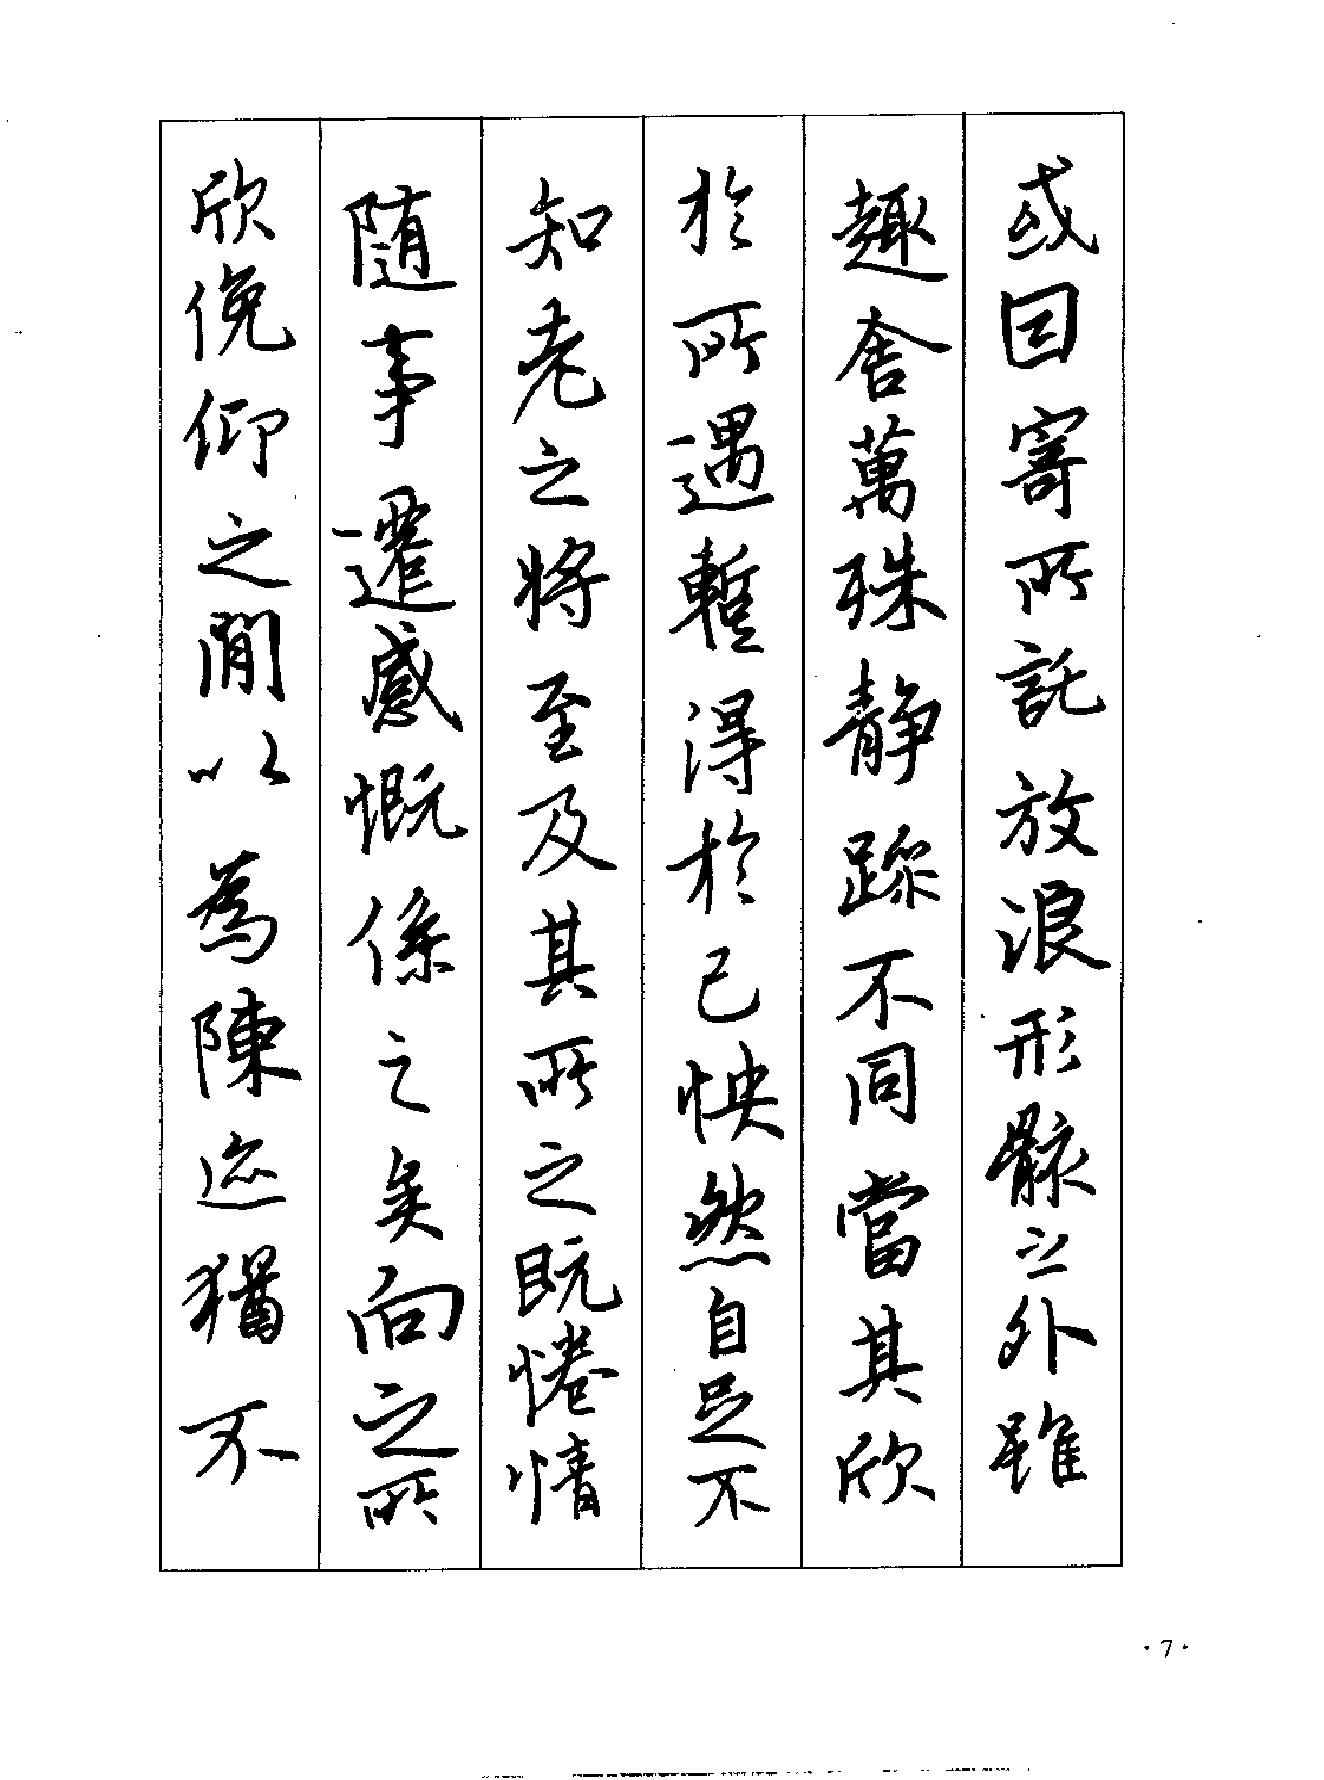 或因寄所託放浪形骸之外雖
趣舍萬殊静躁不同當其欣
於所遇暫得於己怏然自足不
知老之將至及其所之既惓情
随事遷感慨係之矣向之所
欣俛仰之閒以為陳迹猶不
·7·